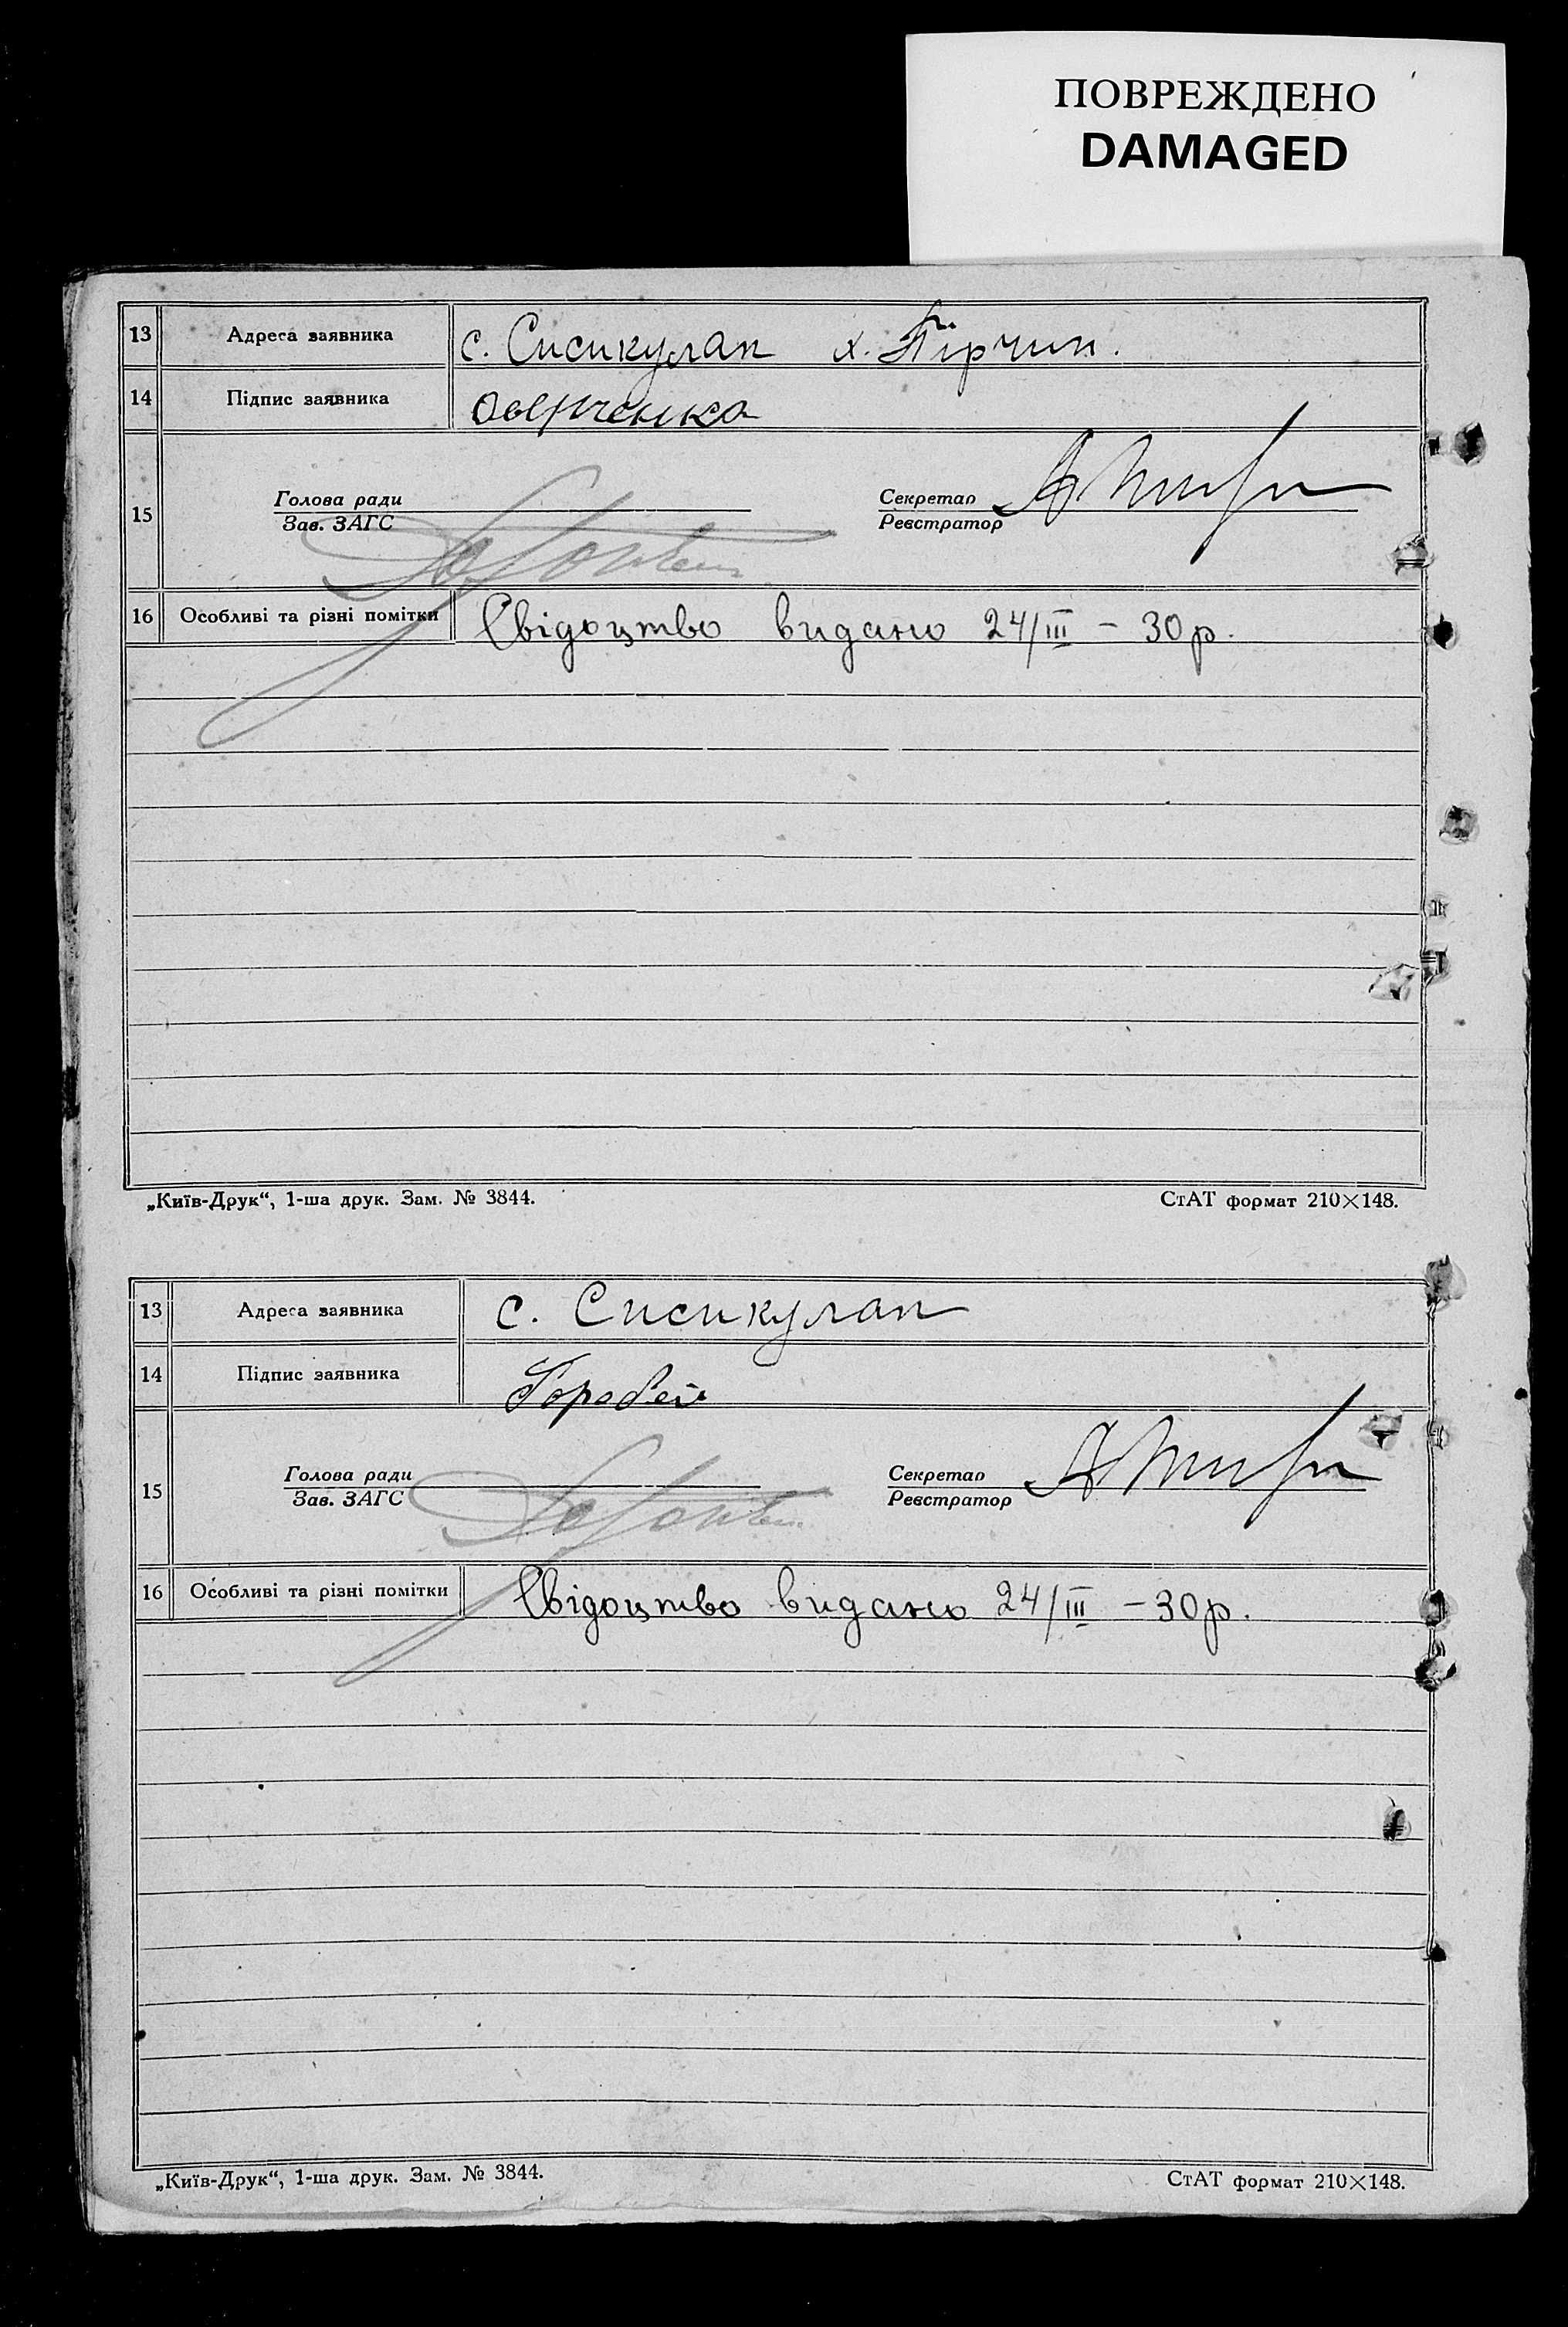 ПОВРЕЖДЕНО
DAMAGED
13 Адреса заявника с. Сисикулап х. Пірчин.
14 Підпис заявника
15 Голова ради Секретар
Зав. ЗАГС Реєстратор
16 Особливі та різні помітки Свідоцтво видано 24/III – 30 р.
„Київ-Друк“, 1-ша друк. Зам. № 3844. СтАТ формат 210×148.
13 Адреса заявника с. Сисикулап
14 Підпис заявника Горобей
15 Голова ради Секретар
Зав. ЗАГС Реєстратор
16 Особливі та різні помітки Свідоцтво видано 24/III – 30 р.
„Київ-Друк“, 1-ша друк. Зам. № 3844. СтАТ формат 210×148.